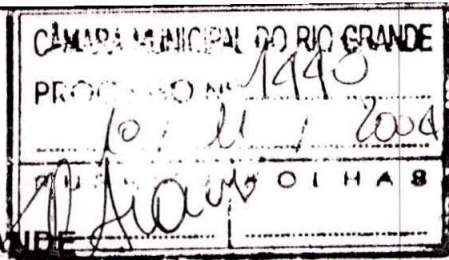 CÂMARA MUNICIPAL DO RIO GRANDE
PROCESSO Nº 1440
10 / 11 / 2004
FOLHAS
ANDE